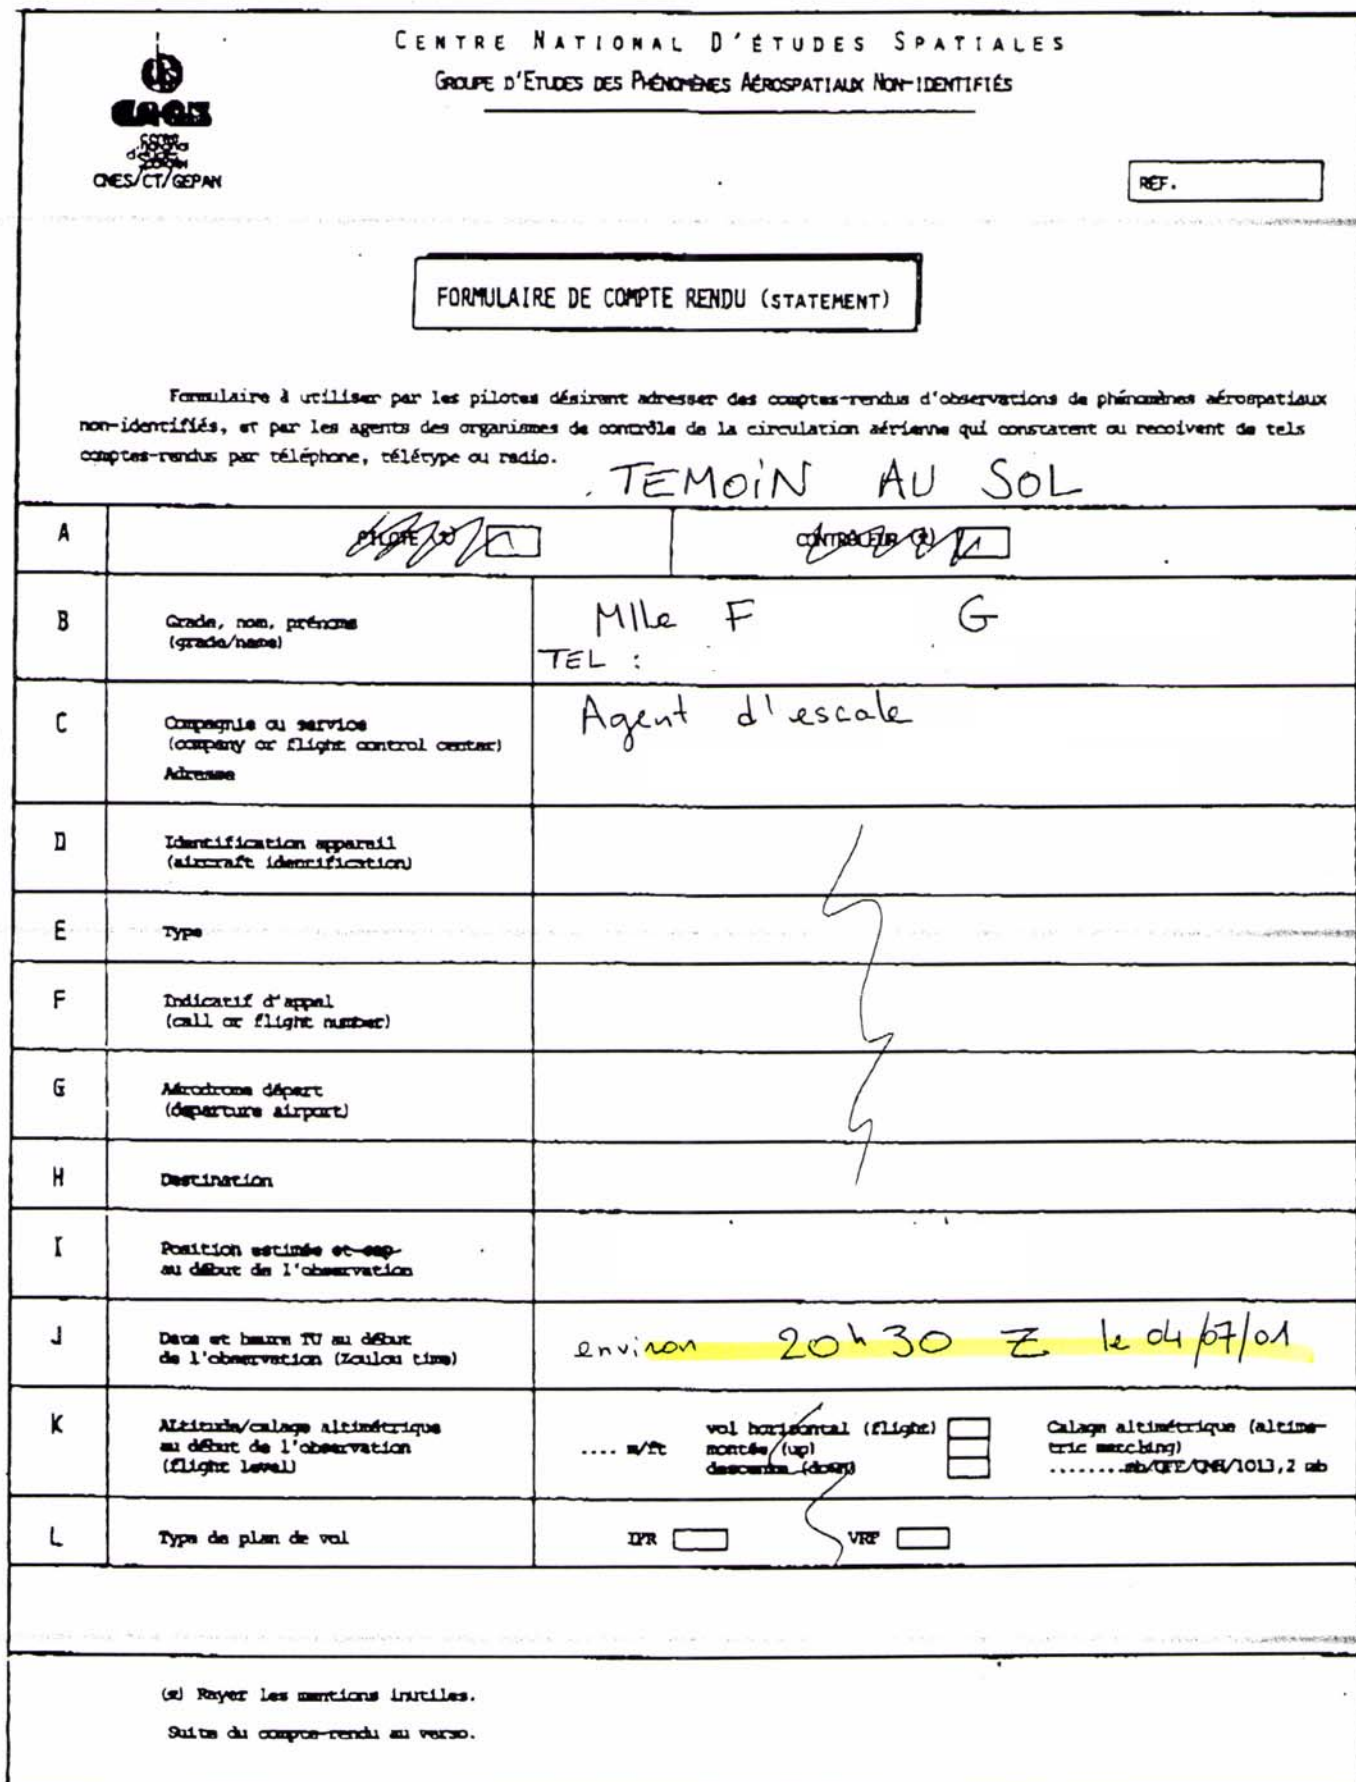 CENTRE NATIONAL D'ÉTUDES SPATIALES
GROUPE D'ETUDES DES PHÉNOMÈNES AÉROSPATIAUX NON-IDENTIFIÉS
CNES
centre
national
d'études
spatiales
CNES/CT/GEPAN
REF.
FORMULAIRE DE COMPTE RENDU (STATEMENT)
Formulaire à utiliser par les pilotes désirant adresser des comptes-rendus d'observations de phénomènes aérospatiaux
non-identifiés, et par les agents des organismes de contrôle de la circulation aérienne qui constatent ou recoivent de tels
comptes-rendus par téléphone, télétype ou radio.
TEMOIN AU SOL
A PILOTE (x) CONTRÔLEUR (x)
B Grade, nom, prénoms Mlle F G
(grade/name) TEL :
C Compagnie ou service Agent d'escale
(company or flight control center)
Adresse
D Identification appareil
(aircraft identification)
E Type
F Indicatif d'appel
(call or flight number)
G Aérodrome départ
(departure airport)
H Destination
I Position estimée et cap
au début de l'observation
J Date et heure TU au début environ 20h30 Z le 04/07/01
de l'observation (Zoulou time)
K Altitude/calage altimétrique vol horizontal (flight) Calage altimétrique (altime-
au début de l'observation .... m/ft montée (up) tric matching)
(flight level) descente (down) ........mb/QFE/QNH/1013,2 mb
L Type de plan de vol IFR VRF
(x) Rayer les mentions inutiles.
Suite du compte-rendu au verso.